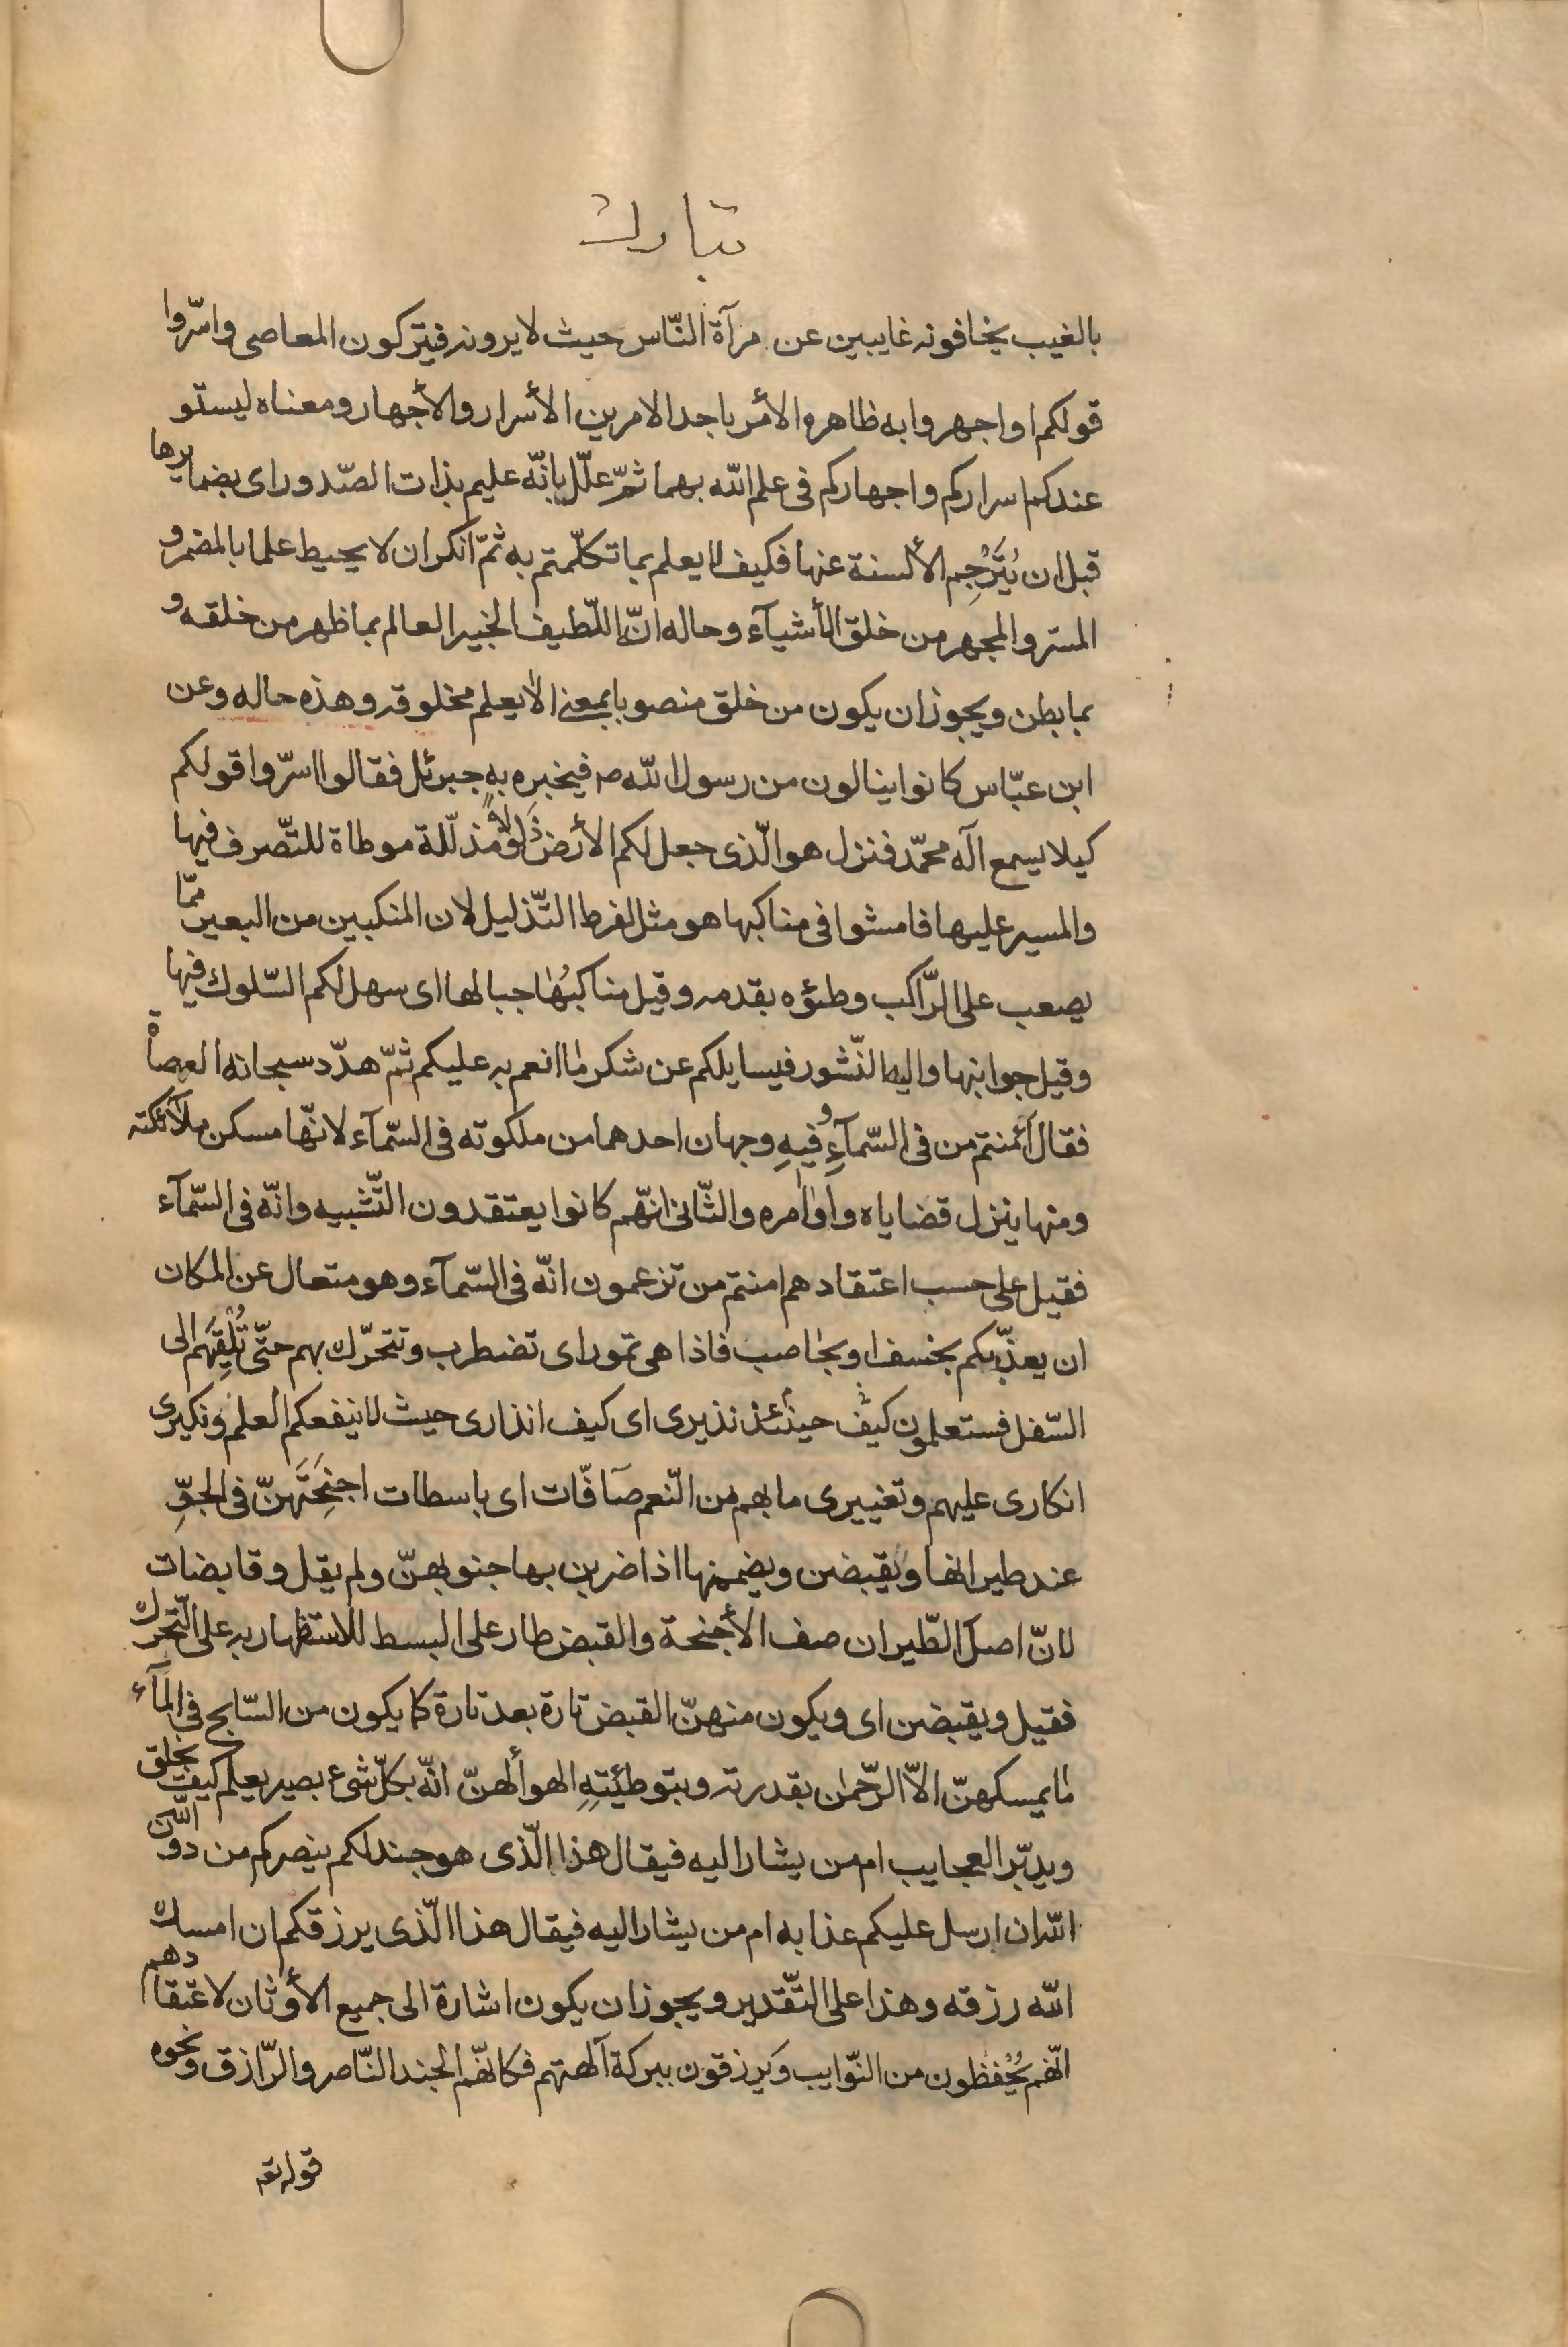 تبارك
بالغيب يخافونه غايبين عن مرآة النّاس حيث لا يرونه فيتركون المعاصى واسّروا
قولكم او اجهروا به ظاهره الأمر باحد الامرين الأسرار والأجهار ومعناه ليستو
عندكم اسراركم واجهاركم فى علم الله بهما ثمّ علّل بانّه عليم بذات الصّدور اى بضمايرها
قبل ان يُتَرْجِم الألسنة عنها فكيف لا يعلم بما تكلّمتم به ثمّ انكر ان لا يحيط علما بالمضمر و
المسّر والمجهر من خلق الأشيآء وحاله انّه اللّطيف الخبير العالم بما ظهر من خلقه و
بما بطن ويجوز ان يكون من خلق منصوبا بمعنى الا يعلم مخلوقه وهذه حاله وعن
ابن عبّاس كانوا ينالون من رسول الله ص فيخبره به جبرئل فقالوا اسرّوا قولكم
كيلا يسمع آله محمّد فنزل هو الّذى جعل لكم الأرض ذَلولاً مذلّلة موطاة للتّصرف فيها
والمسير عليها فامشوا فى مناكبها هو مثل لفرط التّذليل لان المنكبين من البعير ممّا
يصعب على الرّاكب وطئوه بقدمه وقيل مناكبُها جبالها اى سهل لكم السّلوك فيها
وقيل جوانبها واليه النّشور فيسايلكم عن شكر ما انعم به عليكم ثمّ هدّد سبحانه العصاة
فقال أئمنتم من فى السّمآءِ وفيهِ وجهان احدهما من ملكوته فى السّمآء لانّها مسكن ملآئكته
ومنها ينزل قضاياه واوامره والثّانى انّهم كانوا يعتقدون التّشبيه وانّه فى السّمآء
فقيل على حسب اعتقادهم امنتم من تزعمون انّه فى السّمآء وهو متعال عن المكان
ان يعذّبكم بخسف او بحاصب فاذا هى تمور اى تضطرب وتتحرّك بهم حتّى تُلْقِيَهم الى
السّفل فستعلمون كيف حينئذ نذيرى اى كيف انذارى حيث لا ينفعكم العلم ونكيرى
انكارى عليهم وتغييرى ما بهم من النّعم صآفّات اى باسطات اجنِحَتَهنّ فى الجوِّ
عند طيرانها وَيقبضن ويضممنها اذا ضربن بها جنوبهنّ ولم يقل وقابضات
لانّ اصل الطّيران صف الأجنحة والقبض طار على البسط للاستظهار به على التّحرك
فقيل ويقبضن اى ويكون منهنّ القبض تارة بعد تارة كما يكون من السّابح فى المآء
ما يمسكهنّ الاّ الرّحمن بقدرته وبتوطيئتِهِ الهوأ لهنّ انّه بكلّ شىء بصير يعلم كيف يخلق
ويدبّر العجايب ام من يشار اليه فيقال هذا الّذى هو جند لكم ينصركم من دون اللّه
اللّه ان ارسل عليكم عذابه ام من يشار اليه فيقال هذا الّذى يرزقكم ان امسك
اللّه رزقه وهذا على التّقدير ويجوز ان يكون اشارة الى جميع الأوثان لاعتقادهم
انّهم يُحْفظون من النّوايب ويَرزقون ببركة آلهتهم فكانّهم الجند النّاصر والرّازق ونحوه
قوله تعـ